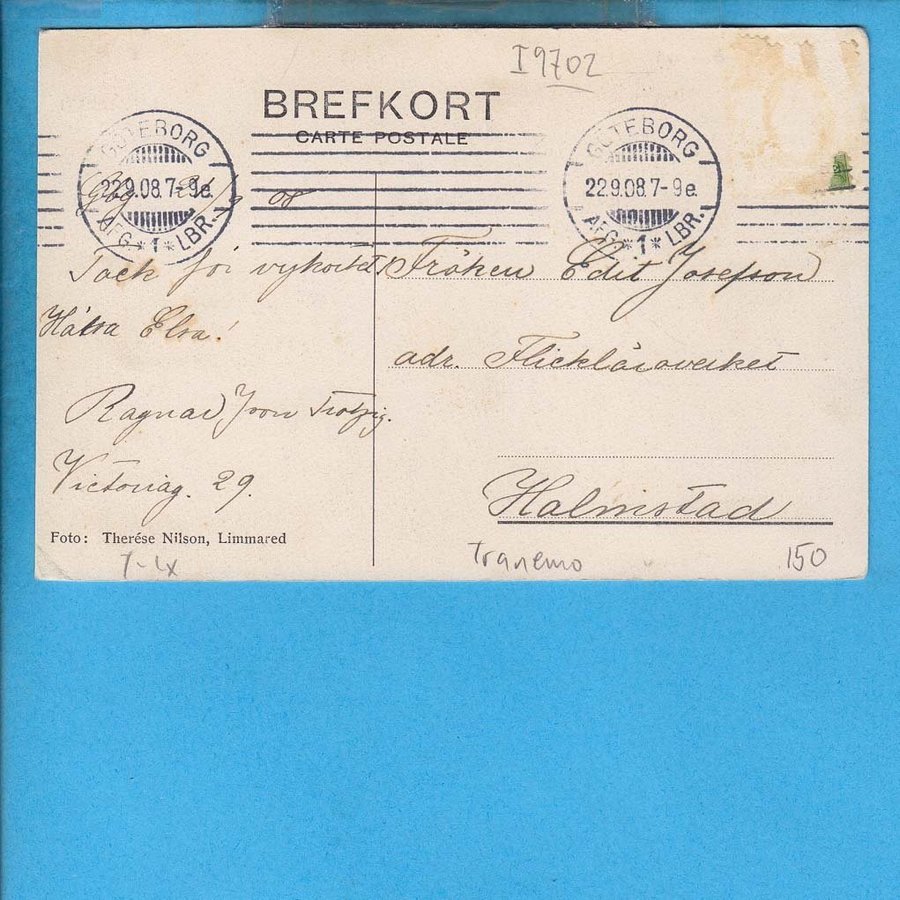 I9702
BREFKORT
CARTE POSTALE
GÖTEBORG
22.9.08.7-9e.
AFG.*1*LBR.
GÖTEBORG
22.9.08.7-9e.
AFG.*1*LBR.
Gbg. 21/9 08
Tack för vykortet!
Hälsa Elsa!
Ragnar von Trotzig.
Victoriag. 29.
Fröken Edit Josefson
adr. Flickläroverket
Halmstad
Foto: Therése Nilson, Limmared
7-LX
Tranemo
150